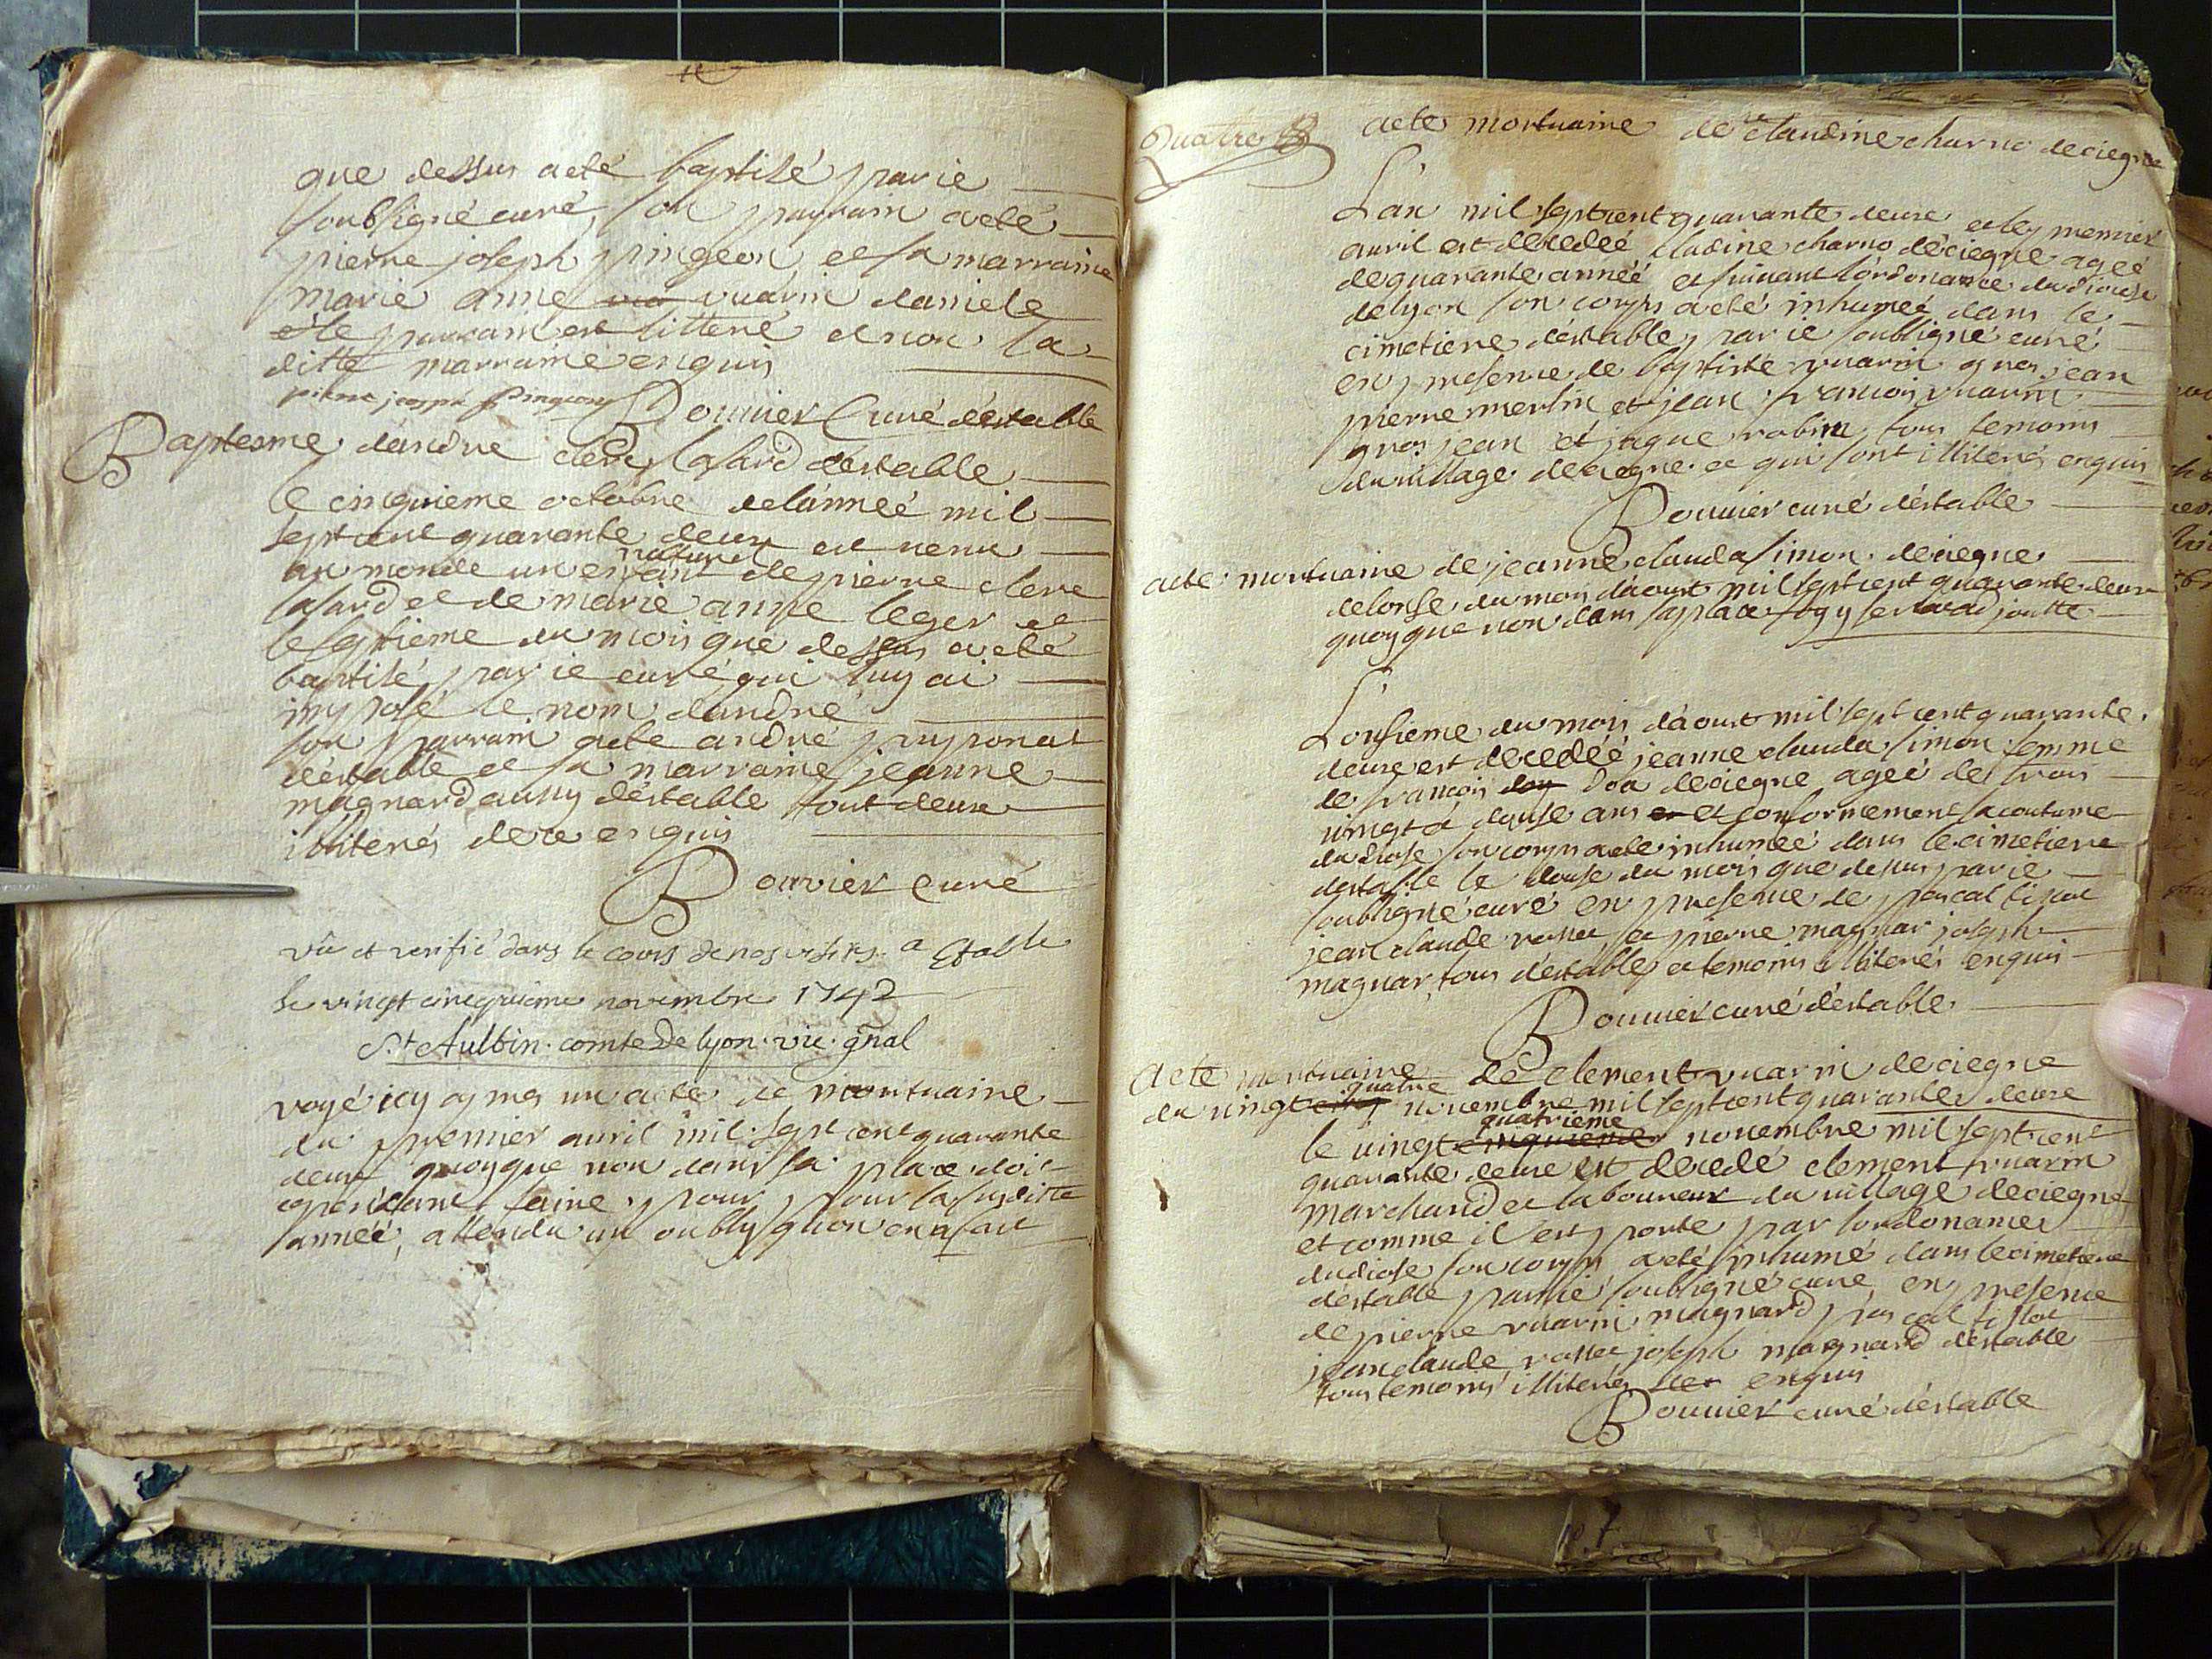 que dessus a eté baptisé par ie
soubsigné curé, son parrain a eté
pierre joseph pingeon et sa marraine
marie anne vuarin daniele
et le parrain est litteré et non la
ditte marraine enquis
pierre joseph Pingeon Bouvier Curé déstable
Baptesme dandré clerc lasard destable
le cinquieme octobre delánneé mil
sept cent quarante deux est venu
au monde un enfant naturel de pierre clerc
lasard et de marie anne leger et
le septieme du mois que dessus a eté
baptisé par ie curé qui luy ai
imposé le nom dandré
son parrain a eté andré
déstable et sa marraine jeanne
magnard aussy déstable tout deux
illiterés de ce enquis
Bouvier curé
vû et verifié dans le cours de nos visites a Etable
le vingt cinquieme novembre 1742
St Aulbin comte De lyon vic gñal
voyé icy apres un acte de mortuaire
du premier avril mil sept cent quarante
deux quoyque non dans sa place doit
cependant faire pour pour la susditte
année, attendu un oubly quon en a fait
Quatre acte mortuaire de claudine charno deciegne
L'an mil sept cent quarante deux et le premier
avril est decedeé cladine charno déciegne ageé
de quarante anneé et suivant l'ordonance du diosese
de lyon son corps a eté inhumeé dans le
cimetiere déstable par ie soubsigné curé
en presence de baptiste vuarin gros jean
pierre merlin et jean francois vuarin
gros jean et jaque robin tous temoins
du village deciegne et qui sont illiterés enquis
Bouvier curé déstable
acte mortuaire de jeanne clauda simon deciegne
de lonse du mois dàoust mil sept cent quarante deux
quoyque non dans sa place icy sera adjoutté
L'onsieme du mois dàoust mil sept cent quarante
deux est decedeé jeanne clauda simon femme
de francois doa deciegne ageé de trois
vingt et douse ans et conformement la coutume
du diose son corps a eté inhumeé dans le cimetiere
destable le douse du mois que dessus par ie
soubsigné curé en presence de pascal tissot
jean claude et pierre magnar joseph
magnar, tous déstable et temoins illiterés enquis
Bouvier curé déstable
Acte mortuaire de clement vuarin deciegne
du vingt quatre novembre mil sept cent quarante deux
le vingt quatrieme novembre mil sept cent
quarante deux est decedé clement vuarin
marchand et laboureur du village deciegne
et comme il est porté par l'ordonance
du diose son corps a eté inhumé dans le cimetiere
déstable par ie soubsigné curé en presence
de pierre vuarin magnard pascal tissot
jean claude joseph magnard destable
tous temoins illiterés enquis
Bouvier curé déstable